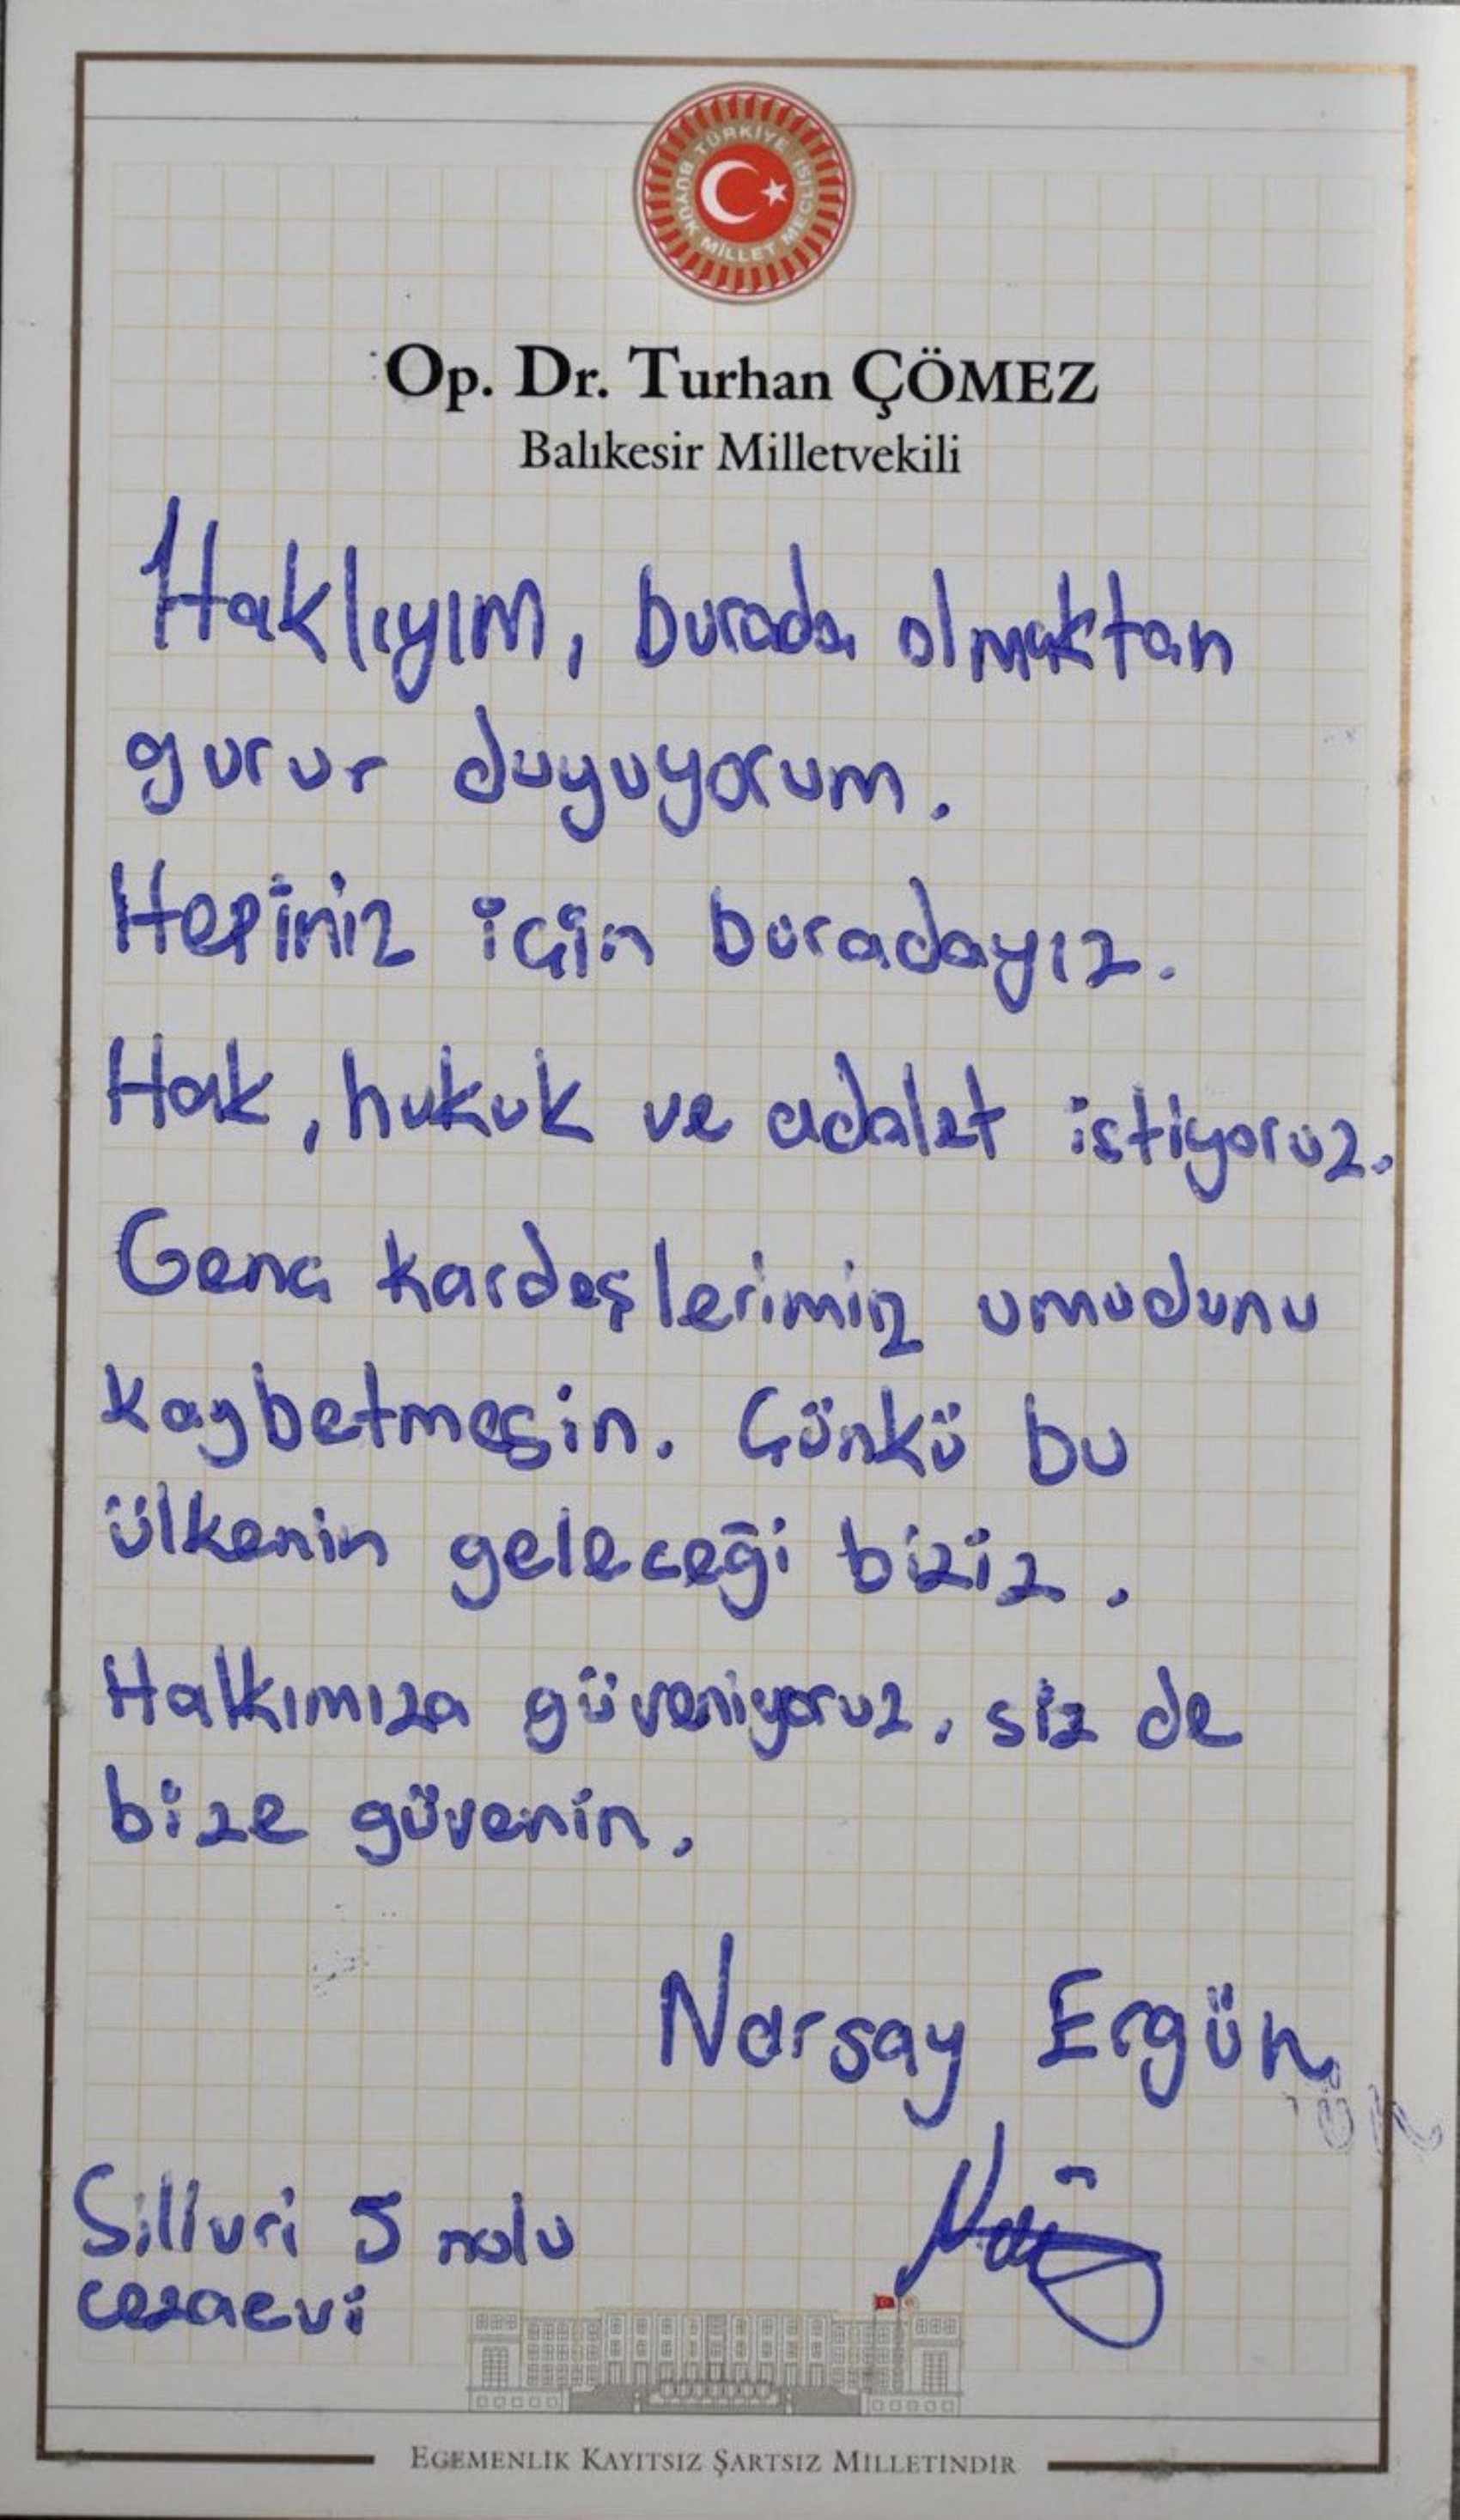 TÜRKİYE BÜYÜK MİLLET MECLİSİ
Op. Dr. Turhan ÇÖMEZ
Balıkesir Milletvekili
Haklıyım, burada olmaktan
gurur duyuyorum.
Hepiniz için buradayız.
Hak, hukuk ve adalet istiyoruz.
Genç kardeşlerimiz umudunu
kaybetmesin. Çünkü bu
ülkenin geleceği biziz.
Halkımıza güveniyoruz, siz de
bize güvenin.
Narsay Ergün
Sillivri 5 nolu
cezaevi
EGEMENLİK KAYITSIZ ŞARTSIZ MİLLETİNDİR